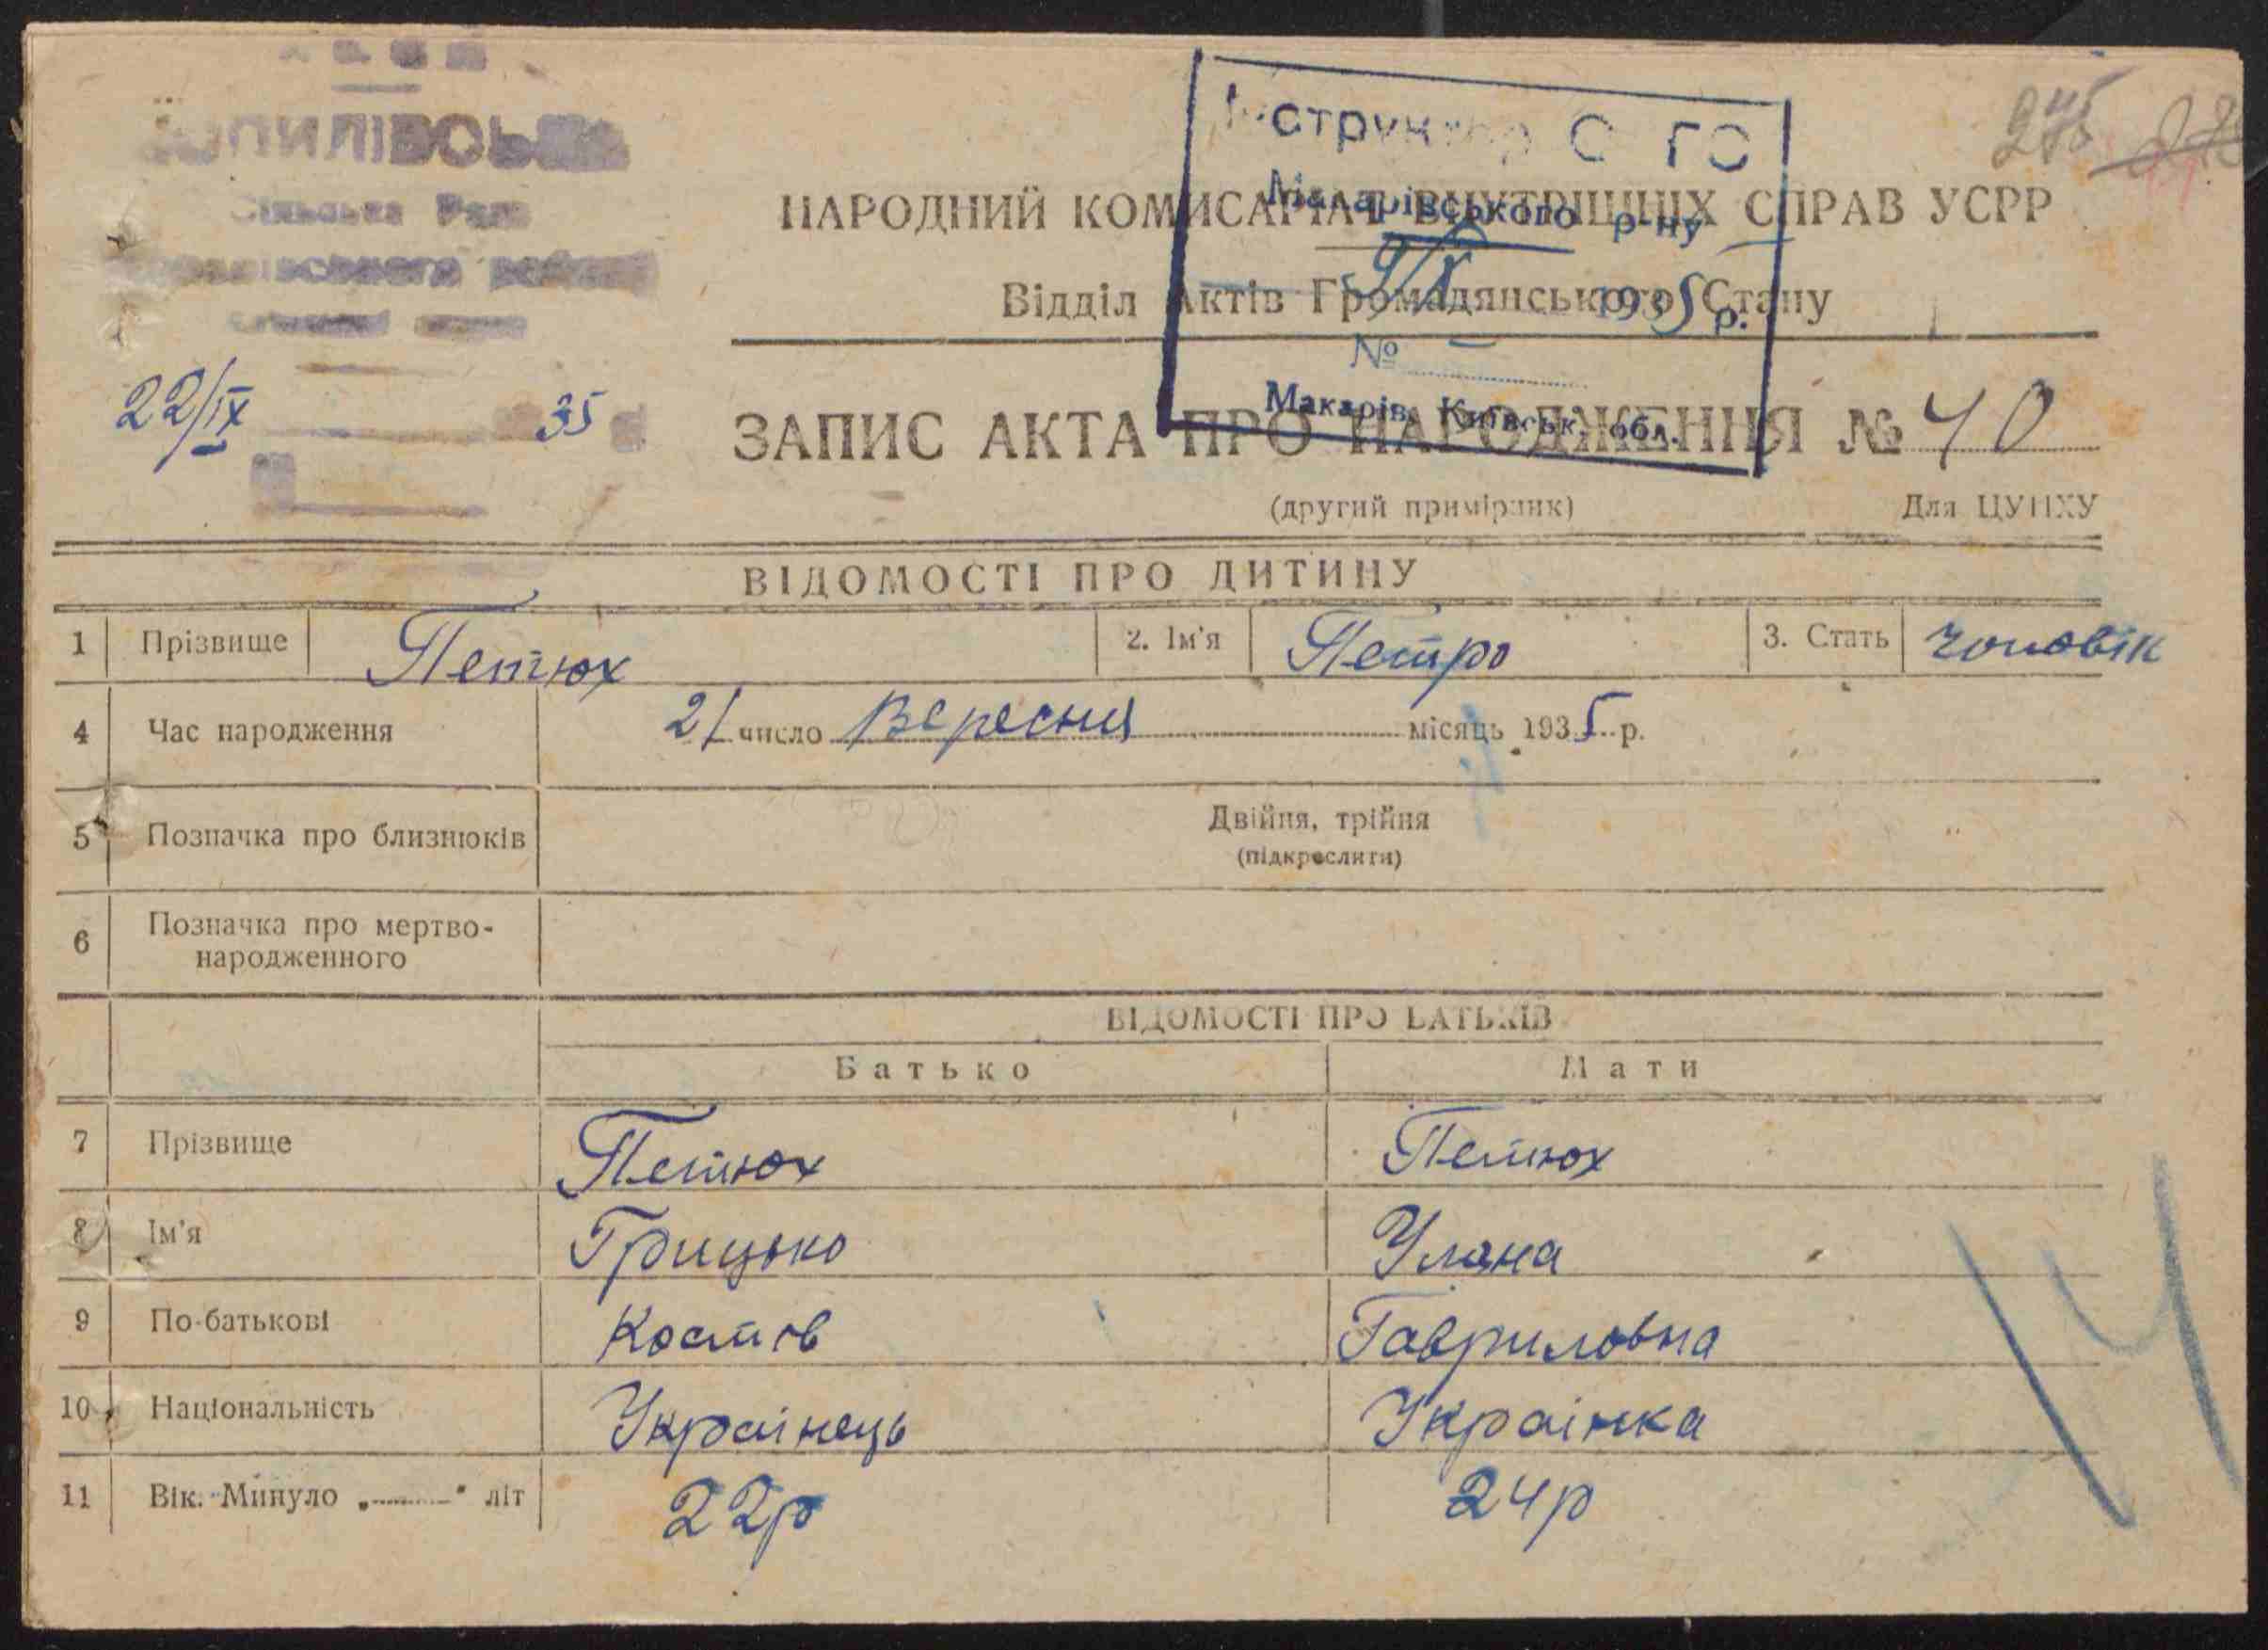 УСРР
Сільська Рада
22/IX 35
Інструктор
Макарівського р-ну
9/X 1935 р.
№ —
Макарів, Київськ. обл.
275
НАРОДНИЙ КОМИСАРІАТ ВНУТРІШНІХ СПРАВ УСРР
Відділ Актів Громадянського Стану
ЗАПИС АКТА ПРО НАРОДЖЕННЯ № 40
(другий примірник) Для ЦУНХУ
ВІДОМОСТІ ПРО ДИТИНУ
1 Прізвище Петюх 2. Ім'я Петро 3. Стать чоловік
4 Час народження 21 число Вересня місяць 1935 р.
5 Позначка про близнюків Двійня, трійня
(підкреслити)
6 Позначка про мертво-
народженного
ВІДОМОСТІ ПРО БАТЬКІВ
Батько Мати
7 Прізвище Петюх Петюх
8 Ім'я Грицько Уляна
9 По-батькові Костів Гавриловна
10 Національність Украінець Украінка
11 Вік. Минуло „........" літ 22р 24р